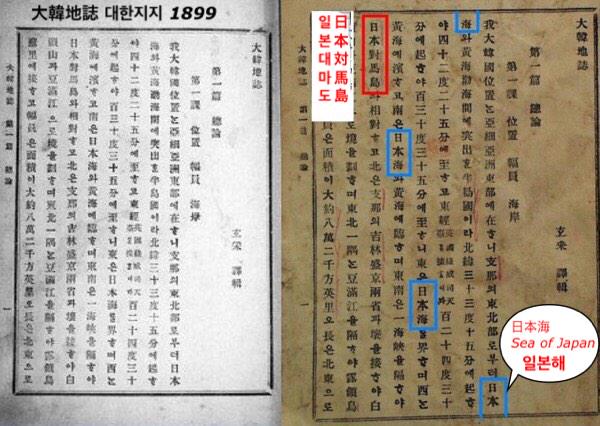 大韓地誌 대한지지 1899
大韓地誌
第一篇 總論
第一課 位置 幅員 海岸
玄采 譯輯
我大韓國位置는亞細亞洲東部에在ᄒᆞ니支那의東北部로부터日本
海와黃海渤海間에突出ᄒᆞᆫ半島國이라北緯三十三度十五分에起ᄒᆞ야
四十二度二十五分에至ᄒᆞ고東經英國綠威司天臺百二十四度三十
分에起ᄒᆞ야百三十度三十五分에至ᄒᆞ니東은日本海를界ᄒᆞ며西는
黃海에濱ᄒᆞ고南은日本海와黃海에臨ᄒᆞ며東南은一海峽을隔ᄒᆞ야
日本對馬島와相對ᄒᆞ고北은支那의吉林盛京兩省과壤을接ᄒᆞ야白
頭山과豆滿江으로境을劃ᄒᆞ며東北一隅는豆滿江을隔ᄒᆞ야露領烏
蘇里에接ᄒᆞ고幅員은面積이大約八萬二千方英里오長은北東으로
大韓地誌 第一篇 總論 一
大韓地誌
第一篇 總論
第一課 位置 幅員 海岸
玄采 譯輯
我大韓國位置는亞細亞洲東部에在ᄒᆞ니支那의東北部로부터日本
海와黃海渤海間에突出ᄒᆞᆫ半島國이라北緯三十三度十五分에起ᄒᆞ야
四十二度二十五分에至ᄒᆞ고東經英國綠威司天臺百二十四度三十
分에起ᄒᆞ야百三十度三十五分에至ᄒᆞ니東은日本海를界ᄒᆞ며西는
黃海에濱ᄒᆞ고南은日本海와黃海에臨ᄒᆞ며東南은一海峽을隔ᄒᆞ야
日本對馬島와相對ᄒᆞ고北은支那의吉林盛京兩省과壤을接ᄒᆞ야白
로境을劃ᄒᆞ며東北一隅는豆滿江을隔ᄒᆞ야露領烏
員은面積이大約八萬二千方英里오長은北東으로
大韓地誌 第一篇 總論
日本対馬島
일본대마도
日本海
Sea of Japan
일본해